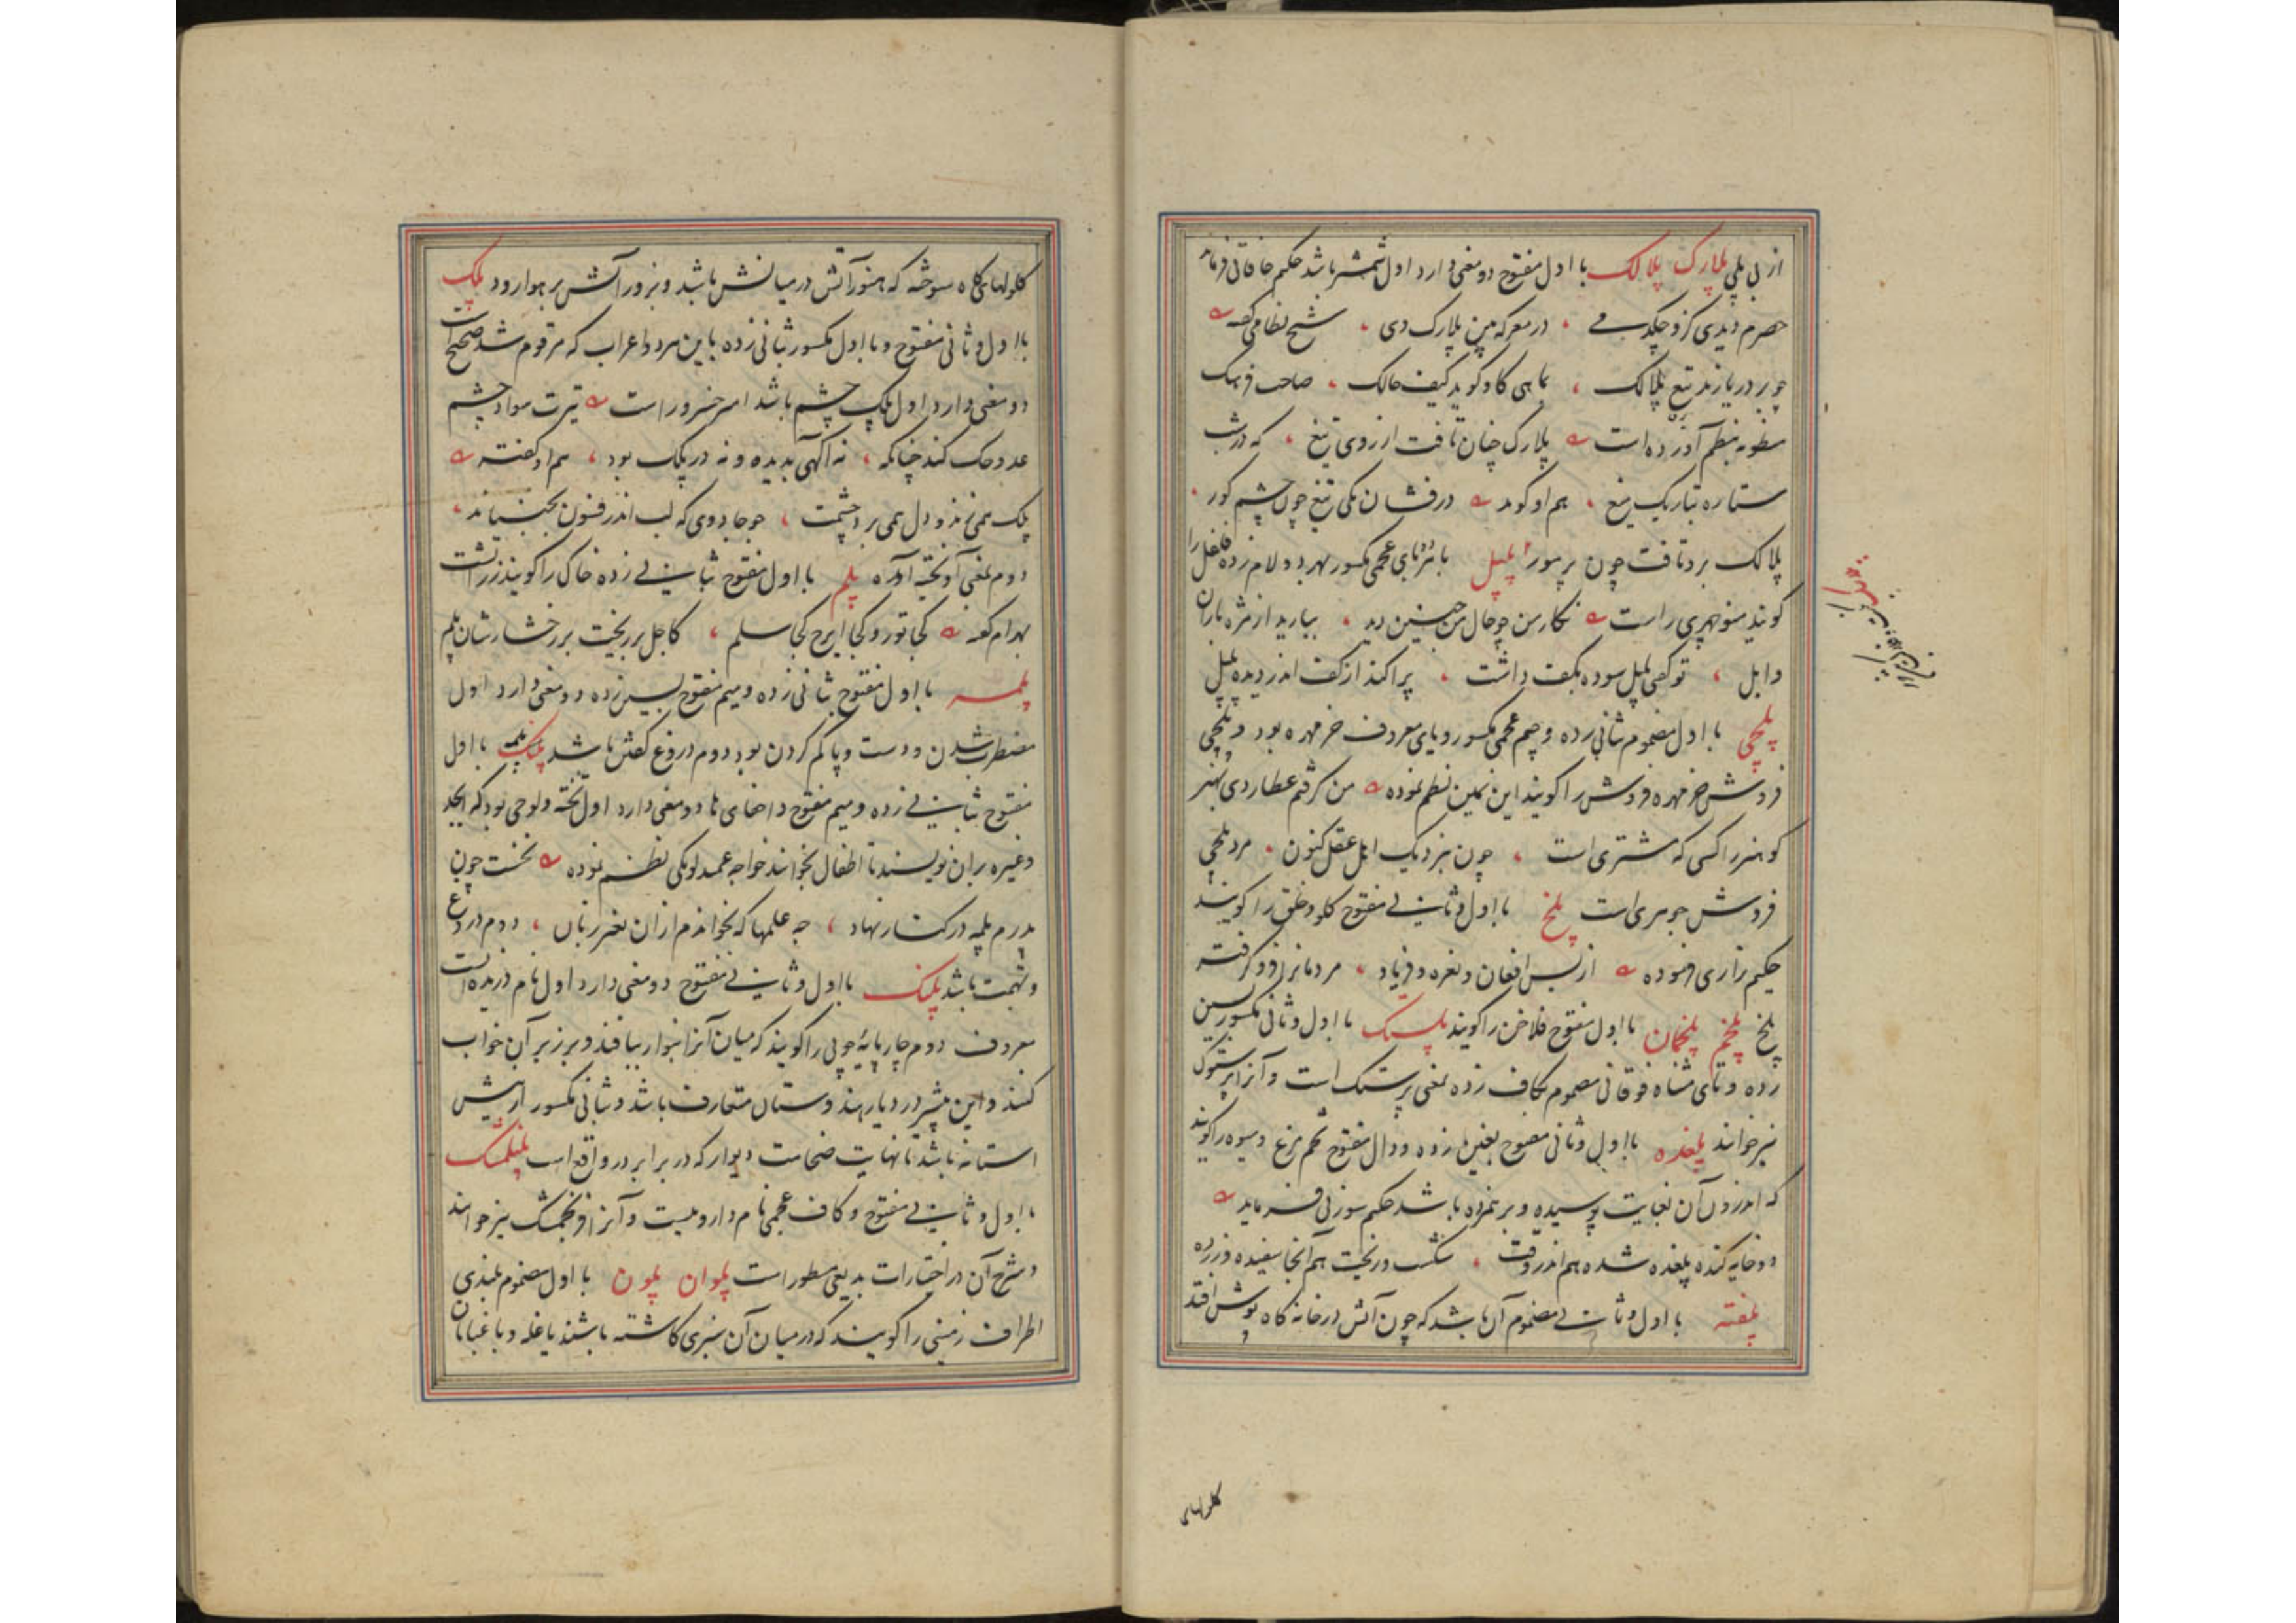 از بی پلی پلارک پلالک با اول مفتوح دو معنی دارد اول شمشیر باشد حکیم خاقانی فرماید
خصرم دیدی کزو چکد می در معرکه بین پلارک دی شیخ نظامی گفته
چو بر دریا زند تیغ پلالک بماهی گاو گوید کیف حالک صاحب فرهنگ
منظومه بنظم آورده است پلارک چنان تافت از روی تیغ که در شب
ستاره بتاریک میغ هم او گوید درفشان یکی تیغ چون چشم گور
پلالک برو تافت چون پر مور پلپل با دو بای عجمی مکسور بهر دو لام زده فلفل را
گویند منوچهری راست نگار من چو حال من چنین دید ببارید از مژه باران
وابل تو گفتی پلپل سوده بکف داشت پراکند از کف اندر دیده پلپل
پلچی با اول مضموم بثانی زده و جیم عجمی مکسور و یای معروف خرمهره بود و پلچی
فروش خرمهره فروش را گویند ابن یمین نظم نموده من گرفتم عطاردی بهنر
کو هنر را کسی که مشتری است چون بنزدیک اهل عقل کنون مرد پلچی
فروش جوهری است پلخ با اول و ثانی مفتوح گلو و حلق را گویند
حکیم نزاری فرموده از بس افغان و نعره و فریاد مردمانرا فرو گرفته
پلخ پلخم پلخمان با اول مفتوح فلاخن را گویند پلستک با اول و ثانی مکسور بسین
زده و تای مثناة فوقانی مضموم بکاف زده بمعنی پرستک است و آنرا پرستوک
نیز خوانند پلغده با اول و ثانی مضموم بغین زده و دال مفتوح تخم مرغ و میوه را گویند
که اندرون آن بغایت پوسیده و برهمزده باشد حکیم سوزنی فرماید
دو خایه کنده پلغده شده هم اندر وقت شکست و ریخت هم آنجا سفیده و زرده
پلفته با اول و ثانی مضموم آن باشد که چون آتش در خانه کاه پوش افتد
کلولهای
کلولهای کاه سوخته که هنوز آتش در میانش باشد و بزور آتش بر هوا رود پلک
با اول و ثانی مفتوح و با اول مکسور بثانی زده باین هر دو اعراب که مرقوم شد صحیح است
دو معنی دارد اول پلک چشم باشد امیر خسرو راست تیرت سواد چشم
عدو حک کند چنانکه نه آگهی بدیده و نه در پلک بود هم او گفته
پلک همی زند و دل همی برد چشمت چو جادوی که لب اندر فسون بجنباند
دوم بمعنی آویخته آمده پلم با اول مفتوح بثانی زده خاک را گویند زرتشت
بهرام گفته کجا تور و کجا ایرج کجا سلم کاجل بر ریخت بر رخشارشان پلم
پلمسه با اول مفتوح بثانی زده و میم مفتوح بسین زده دو معنی دارد اول
مضطرب شدن و دست و پا گم کردن بود دوم دروغ گفتن باشد پلمه با اول
مفتوح بثانی زده و میم مفتوح و اخفای ها دو معنی دارد اول تخته و لوحی بود که ابجد
و غیره بران نویسند تا اطفال بخوانند خواجه عمید لومکی نظم نموده نخست چون
پدرم پلمه در کنار نهاد چه علمها که نخواندم ازان بغیر زبان دوم دروغ
و تهمت باشد پلنگ با اول و ثانی مفتوح دو معنی دارد اول نام درنده ایست
معروف دوم چارپایهٔ چوبی را گویند که میان آنرا بنوار ببافند و بر زبر آن خواب
کنند و این بیشتر در دیار هندوستان متعارف باشد و بثانی مکسور از پیش
استانه باشد تا نهایت ضخامت دیوار که در برابر در واقع است پلنگمشک
با اول و ثانی مفتوح و کاف عجمی نام داروییست و آنرا فرنجمشک نیز خوانند
و شرح آن در اختیارات بدیعی مسطور است پلوان پلون با اول مضموم بلندی
اطراف زمینی را گویند که در میان آن سبزی کاشته باشند یا غله و باغبانان